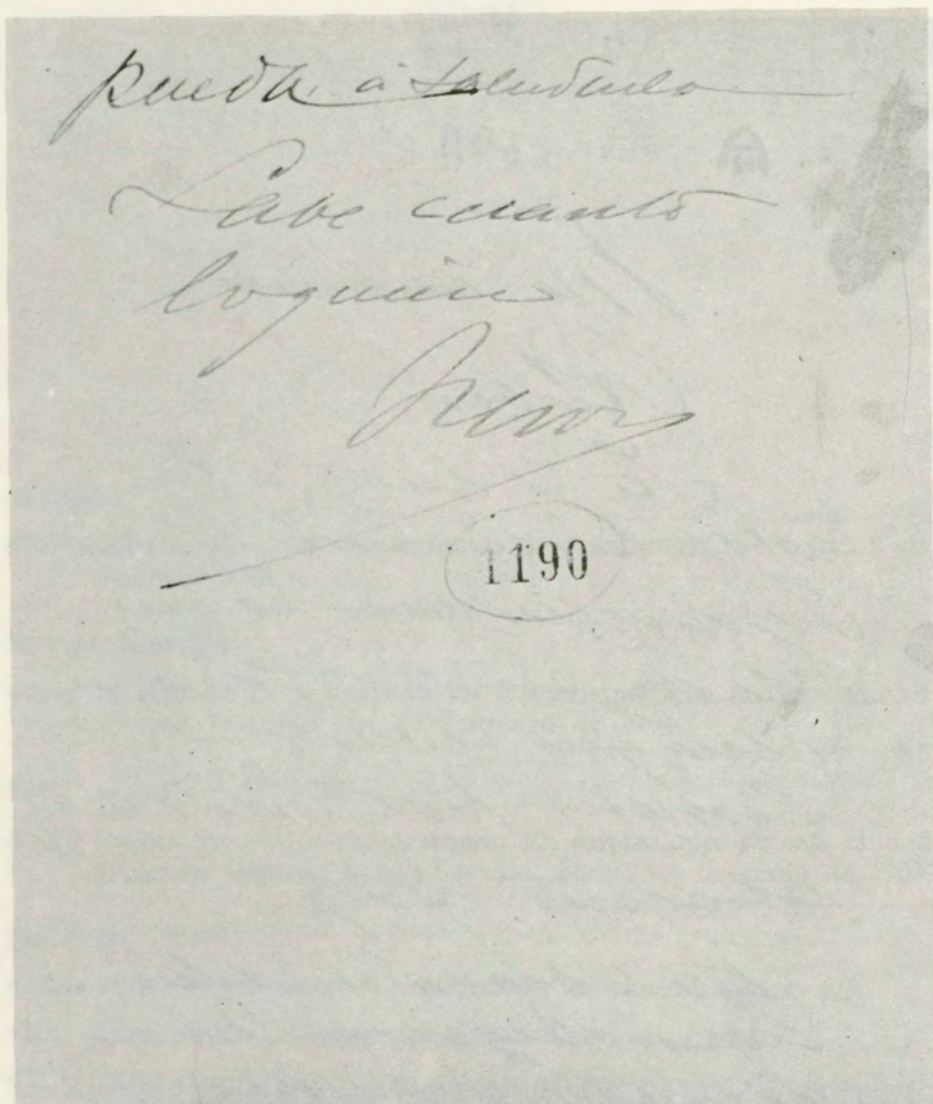 pueda á saludarlo
Sabe cuanto
lo quiere
1190